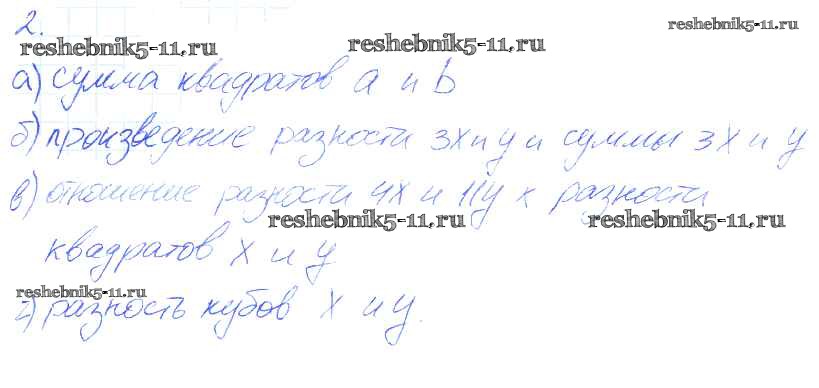 2.
reshebnik5-11.ru
reshebnik5-11.ru
reshebnik5-11.ru
а) сумма квадратов a и b
б) произведение разности 3x и y и суммы 3x и y
в) отношение разности 4x и 11y к разности
reshebnik5-11.ru
reshebnik5-11.ru
квадратов x и y
reshebnik5-11.ru
г) разность кубов x и y.